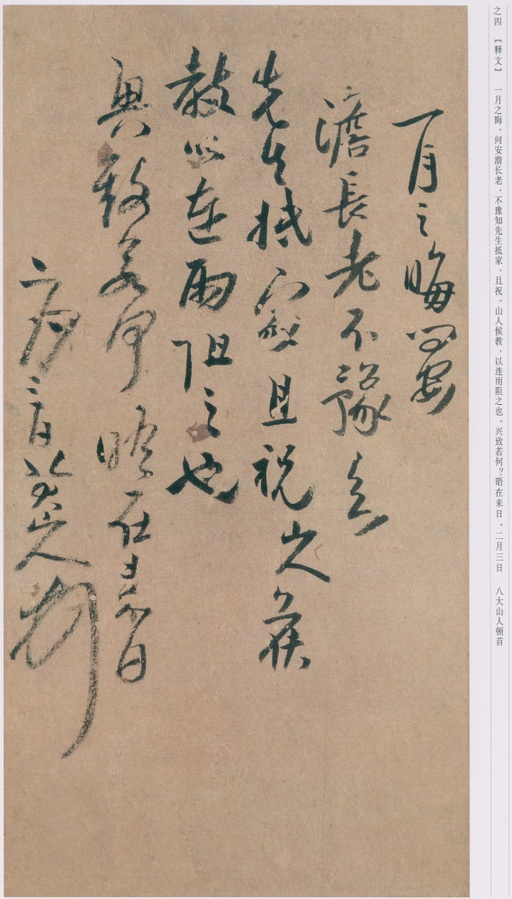 之四 【释文】 一月之晦，问安澹长老，不豫知先生抵家，且祝，山人候教，以连雨阻之也。兴致若何？晤在来日，二月三日 八大山人顿首
一月之晦问安
澹長老不豫知
先生抵家且祝山人候
教以连雨阻之也
興致若何晤在来日
二月三日八大山人顿首